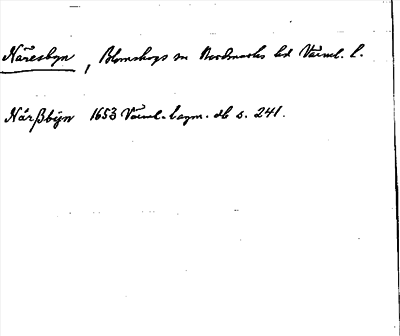 Näresbyn, Blomskogs sn Nordmarks hd Värml. l.
Närßbÿn 1653 Värml. lagm. db s. 241.